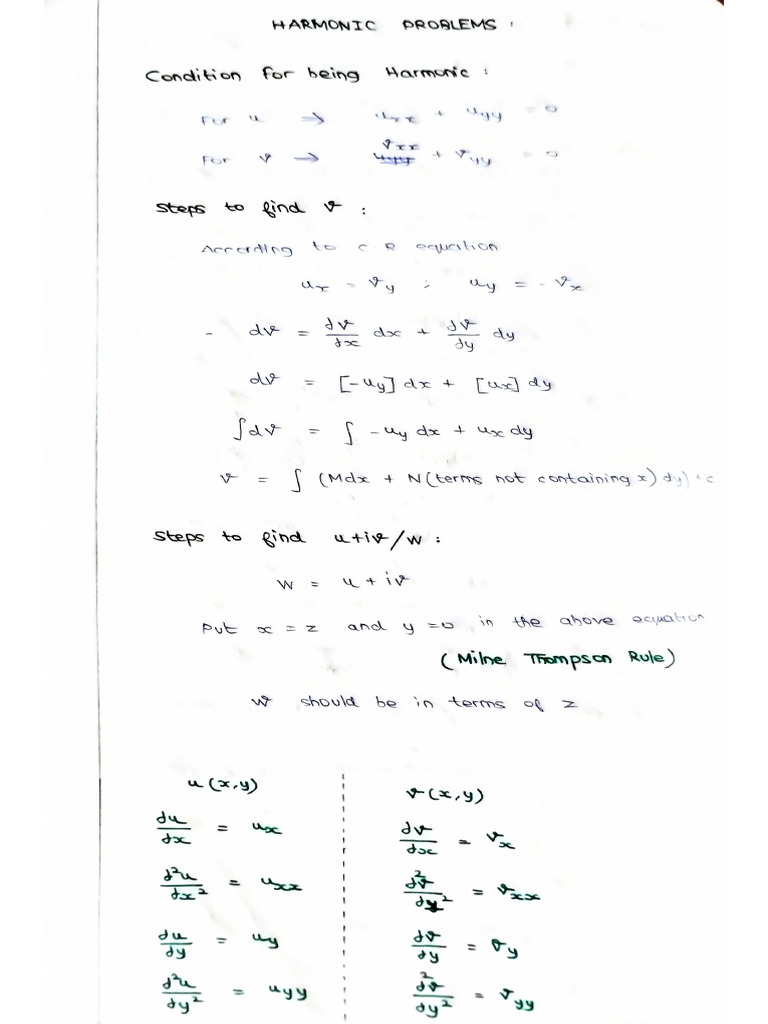 HARMONIC PROBLEMS :
Condition for being Harmonic :
For u → u_xx + u_yy = 0
For v → ~~u_yy~~ v_xx + v_yy = 0
Steps to find v :
According to C R equation
u_x = v_y ; u_y = - v_x
- dv = ∂v/∂x dx + ∂v/∂y dy
dv = [-u_y] dx + [u_x] dy
∫dv = ∫ -u_y dx + u_x dy
v = ∫ (Mdx + N(terms not containing x) dy) + c
Steps to find u+iv/w :
w = u + iv
Put x = z and y = 0 in the above equation
(Milne Thompson Rule)
w should be in terms of z
u (x,y)
∂u/∂x = u_x
∂²u/∂x² = u_xx
∂u/∂y = u_y
∂²u/∂y² = u_yy
v (x,y)
∂v/∂x = v_x
∂²v/∂x² = v_xx
∂v/∂y = v_y
∂²v/∂y² = v_yy